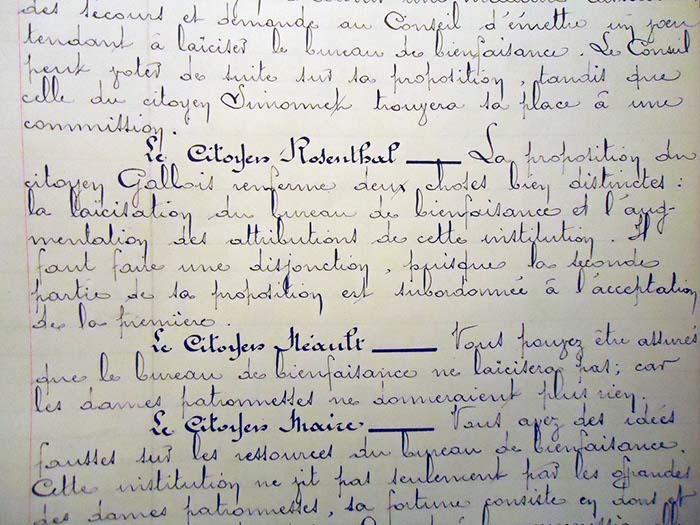 des secours et demande au Conseil d'émettre un vœu
tendant à laïciser le bureau de bienfaisance. Le Conseil
peut voter de suite sur sa proposition, tandis que
celle du citoyen Simonnek trouvera sa place à une
commission.
Le Citoyen Rosenthal — La proposition du
citoyen Gallois renferme deux choses bien distinctes :
la laïcisation du bureau de bienfaisance et l'aug-
mentation des attributions de cette institution. Il
faut faire une disjonction, puisque la seconde
partie de sa proposition est subordonnée à l'acceptation
de la première.
Le Citoyen Méault — Vous pouvez être assurés
que le bureau de bienfaisance ne laïcisera pas; car
les dames patronnesses ne donneraient plus rien.
Le Citoyen Maire — Vous avez des idées
fausses sur les ressources du bureau de bienfaisance.
Cette institution ne vit pas seulement par les grandes
des dames patronnesses, sa fortune consiste en dons et